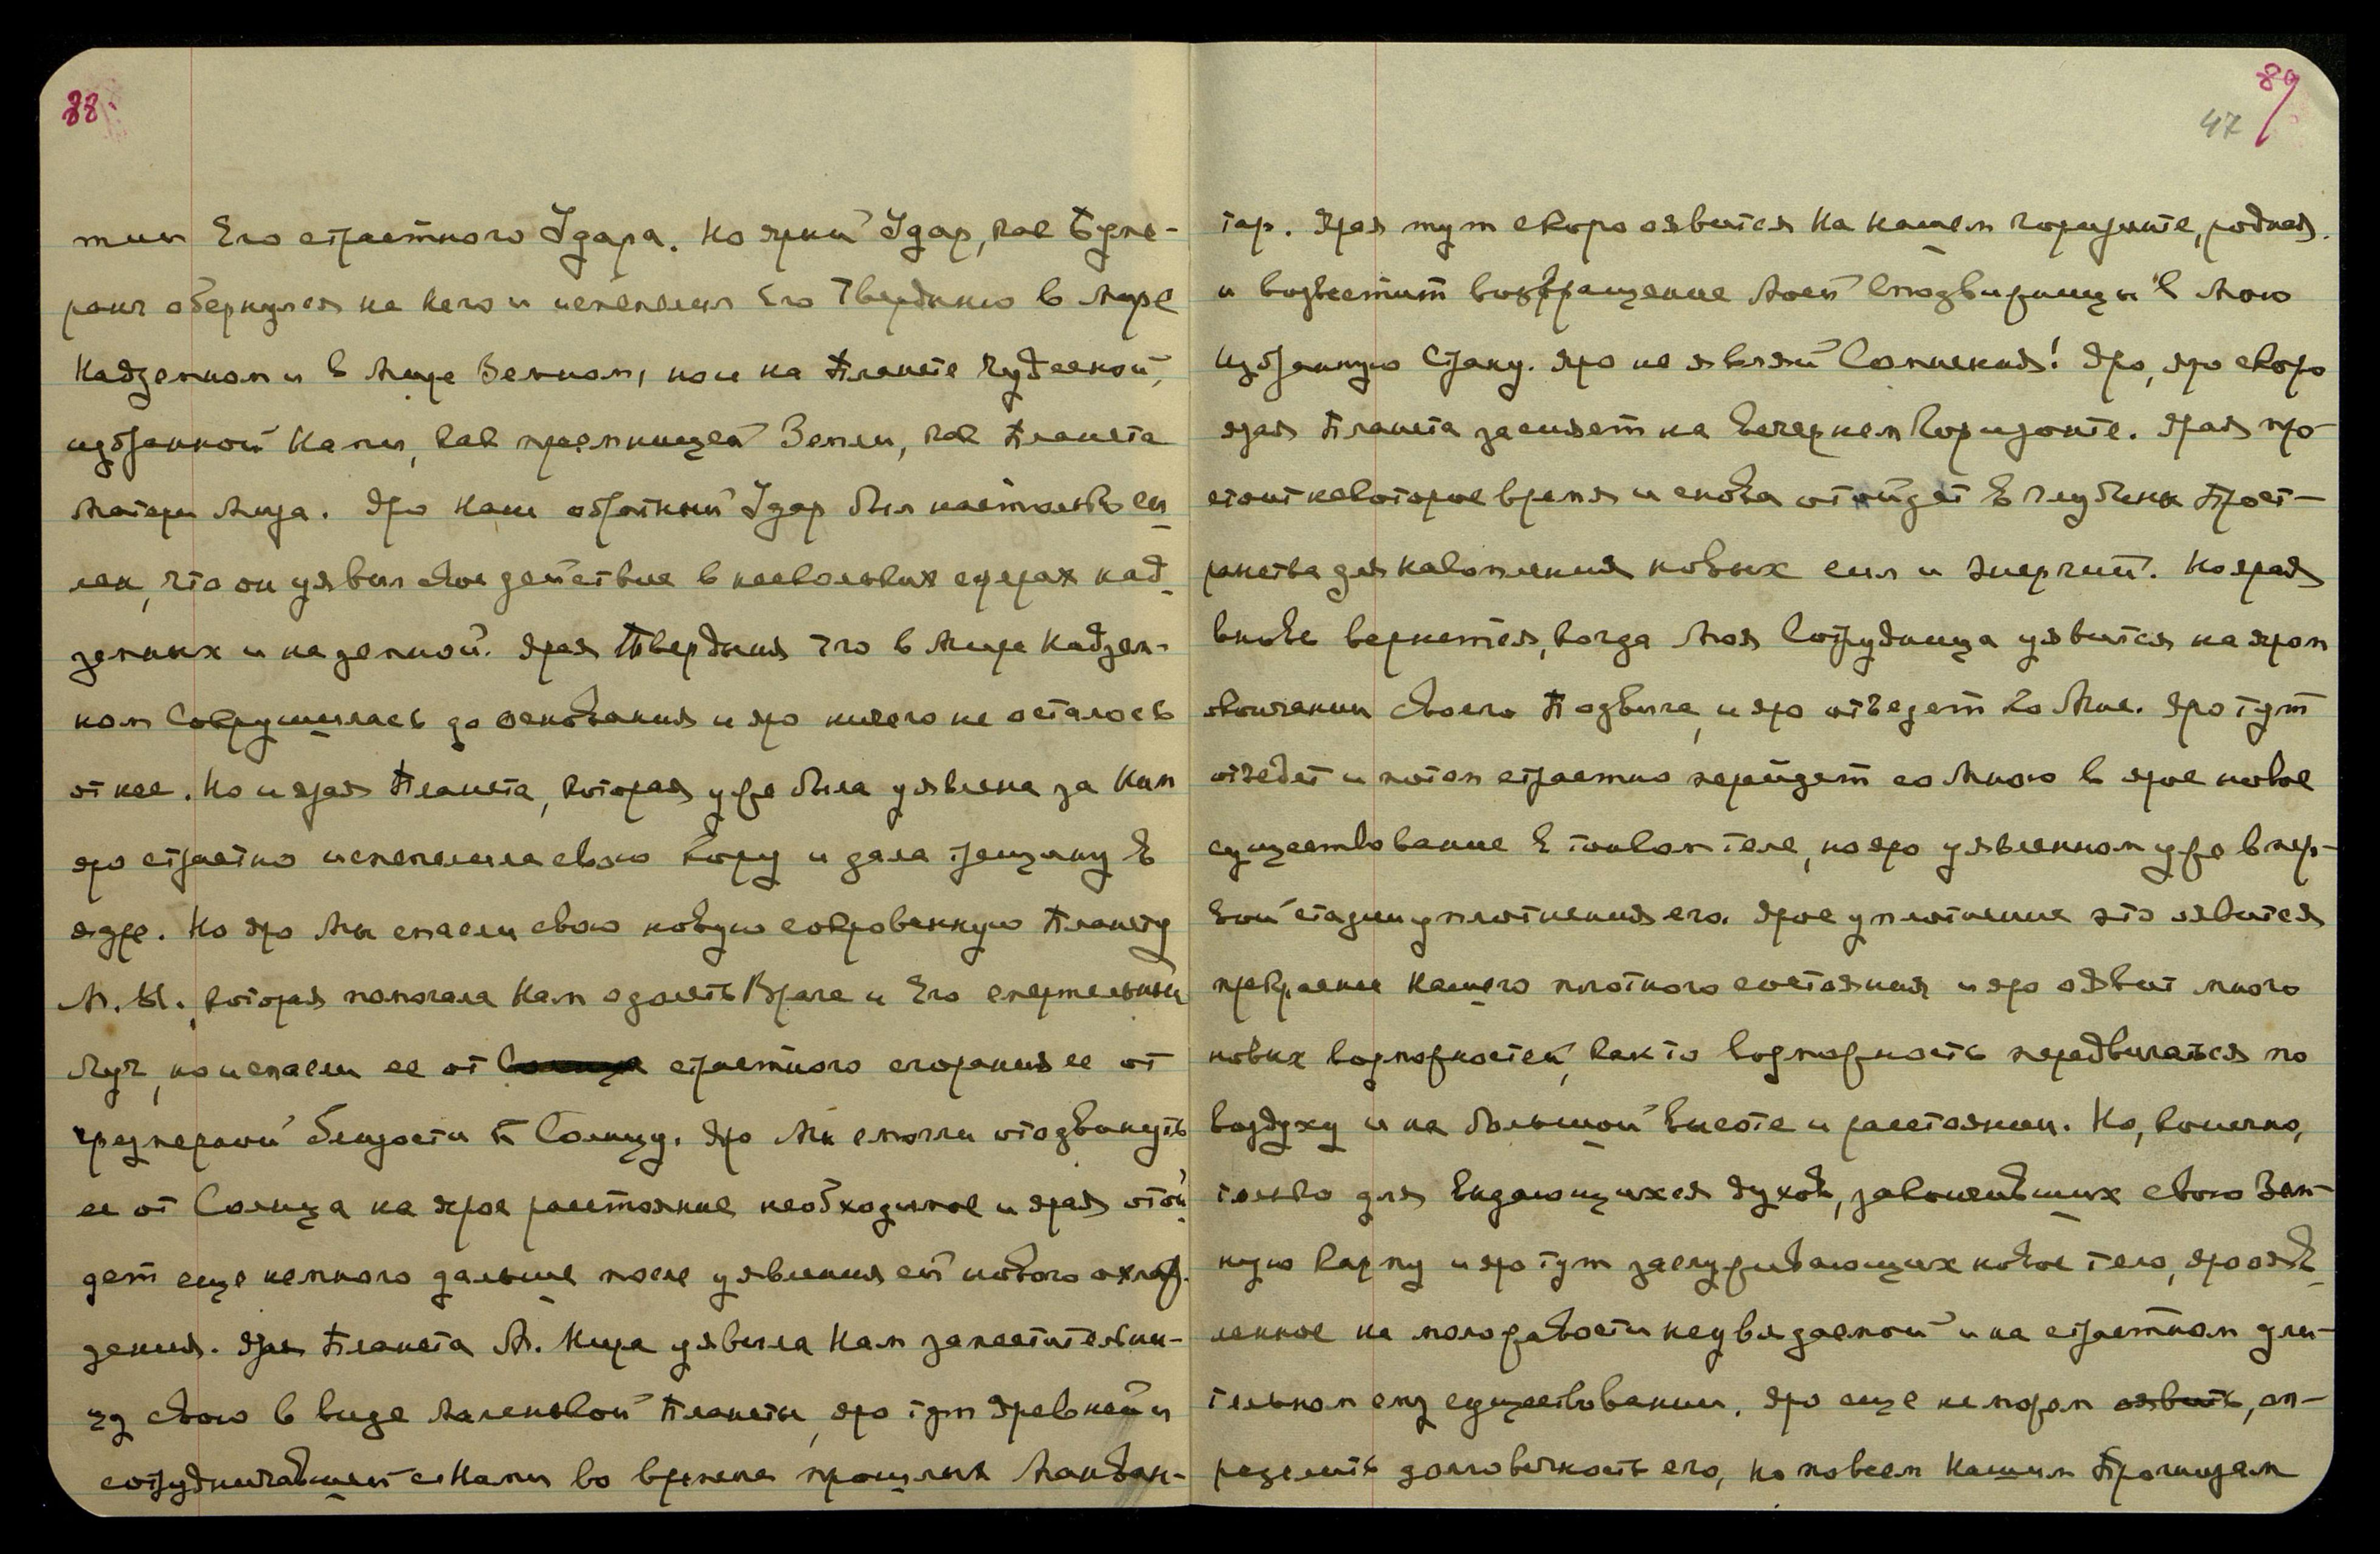 88.
тил Его страстного Удара. Но ярый Удар, как Буме-
ранг обернулся на Него и испепелил Его Твердыню в Мире
Надземном и в Мире Земном, но и на Планете Чудесной,
избранной Нами, как преемницей Земли, как Планета
Матери Мира. Яро Наш обратный Удар был настолько си-
лен, что он уявил свое действие в нескольких сферах над-
земных и на земной. Ярая Твердыня Его в Мире Надзем-
ном Сокрушилась до основания и яро ничего не осталось
от нее. Но и ярая Планета, которая уже была уявлена за Ним
яро страстно испепелила свою Кору и дала трещину в
ядре. Но яро Мы спасли свою новую сокровенную Планету
М. М., которая помогала Нам одолеть Врага и Его смертельный
Луч, но и спасли ее от страстного сгорания ее от
чрезмерной близости к Солнцу. Яро Мы смогли отодвинуть
ее от Солнца на ярое расстояние необходимое и ярая отой-
дет еще немного дальше после уявления ей нового охлаж-
дения. Ярая Планета М. Мира уявила Нам заместительни-
цу свою в виде Маленькой Планеты, яро тут древней и
сотрудничавшей с Нами во времена прошлых Манван-
89
47
тар. Ярая тут скоро оявится на нашем горизонте, родная.
и возвестит возвращение Моей Сподвижницы в Мою
Избранную Страну. Яро не являй Сомнения! Яро, яро скоро
ярая Планета засияет на Вечернем Горизонте. Ярая про-
стоит некоторое время и снова отойдет в глубины Прост-
ранства для накопления новых сил и энергий. Но ярая
вновь вернется, когда Моя Сотрудница уявится на яром
окончании своего Подвига, и яро отведет ко Мне. Яро тут
отведет и потом страстно перейдет со Мною в ярое новое
существование в тонком теле, но яро уявленном уже в пер-
вой стадии уплотнения его. Ярое уплотнение это оявится
прекраснее нашего плотного состояния и яро оявит много
новых возможностей, как то возможность передвигаться по
воздуху и на большой высоте и расстоянии. Но, конечно,
только для Выдающихся духов, закончивших свою Зем-
ную карму и яро тут заслуживающих новое тело, яро ояв-
ленное на моложавости неувядаемой и на страстном дли-
тельном ему существовании. Яро еще не можем оявить, оп-
ределить долговечность его, но по всем Нашим Прогнозам